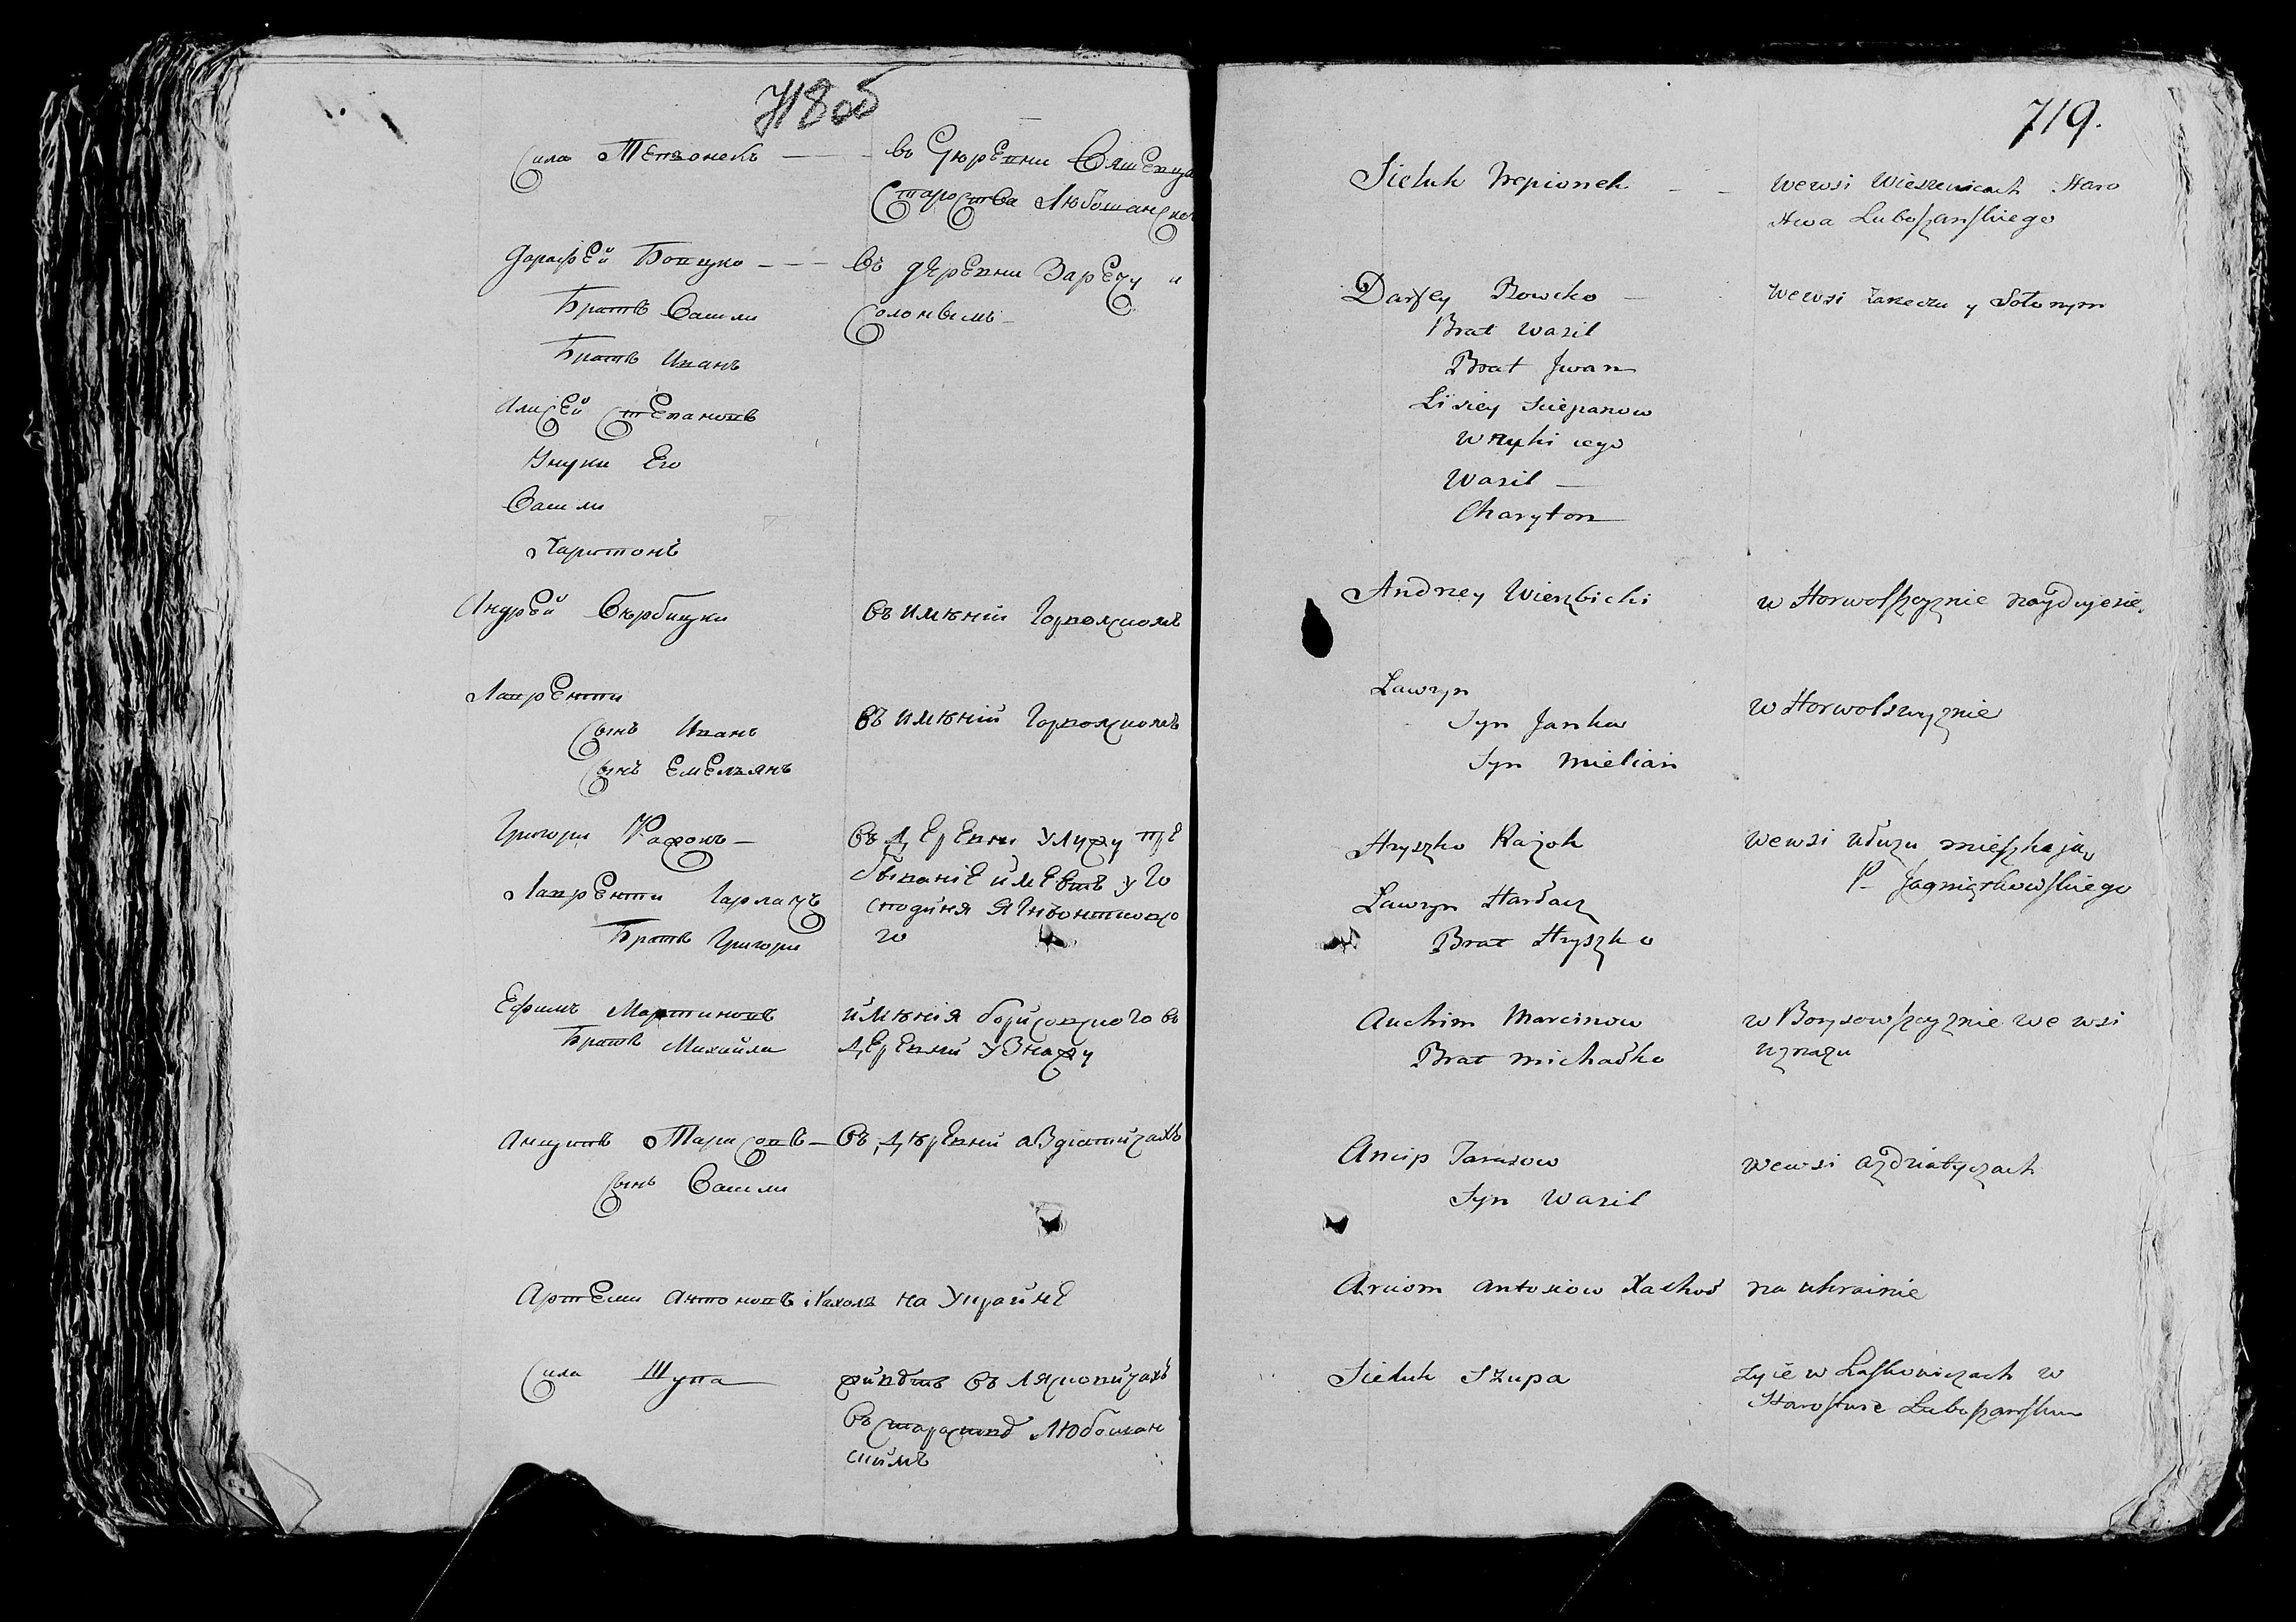 718об
Сила Тепьонекъ — въ Деревни Вяшевца
Староства Любошанско
Дарафей Бовцко — — въ деревни Заречу и
Братъ Васили Солонымъ
Братъ Иванъ
Алисей Степановъ
Унуки Его
Васили
Харитонъ
Андрей Вербицки въ имѣніи Горволскомъ
Лаврентти
Сынъ Иванъ въ имѣніи Горволскомъ
Сынъ Емельянъ
Григори Ражокъ — въ деревни Улужу пре
бываніе имеетъ у го
Лаврентти Гарлачъ сподиня
Братъ Григори го
Ефимъ Мартиновъ имѣнія борисовского въ
Братъ Михайла деревни Узнажу
Анцупъ Тарасовъ — въ деревни аздятичахъ
Сынъ Васили
Артеми Антоновъ Кахолъ на Украйне
Сила Шупа живетъ въ Лясковичахъ
въ староствѣ Любошан
скимъ
719.
Sieluk Trepionek — — we wsi Wieszewicach Staro
stwa Luboszanskiego
Darfey Bowcko — we wsi Zareczu y Sołonym
Brat Wasil
Brat Jwan
Lisiey Sciepanow
Wnuki iego
Wasil —
Charyton
Andrzey Wierzbicki w Horwolszczyznie nayduie sie
Lawryn
Syn Janka w Horwolszczyznie
Syn Mielian
Hryszko Razok we wsi Ułuzu mieszkaja u
P. Jagmiątkowskiego
Lawryn Harłacz
Brat Hryszko
Auchim Marcinow w Borysowszczyznie we wsi
Brat Michałko Uznazu
Ancip Tarasow we wsi Azdziatyczach
Syn Wasil
Arciom Antosiow Kachoł na Ukrainie
Sieluk Szupa zyie w Laskowiczach w
Starostwie Luboszanskim